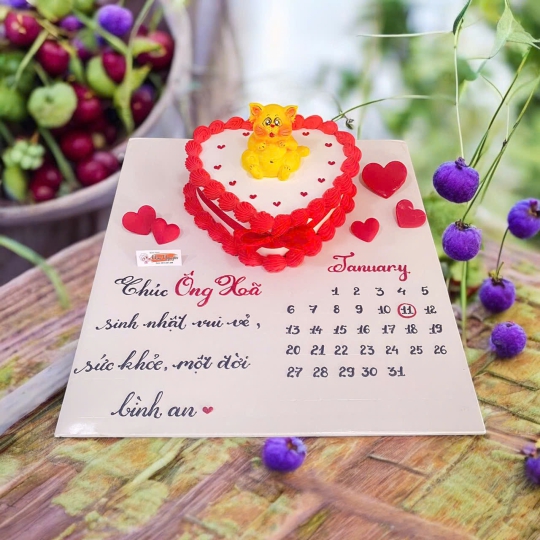 Chúc Ông Xã
sinh nhật vui vẻ,
sức khỏe, một đời
bình an
January
1 2 3 4 5
6 7 8 9 10 11 12
13 14 15 16 17 18 19
20 21 22 23 24 25 26
27 28 29 30 31